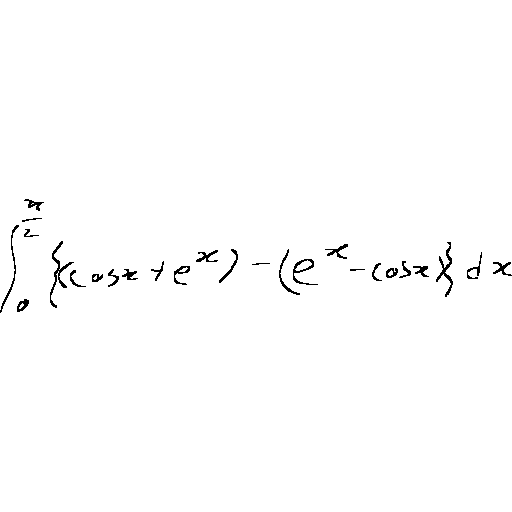 \int_{0}^{\frac{\pi}{2}} \{(\cos x + e^{x}) - (e^{x} - \cos x)\} dx